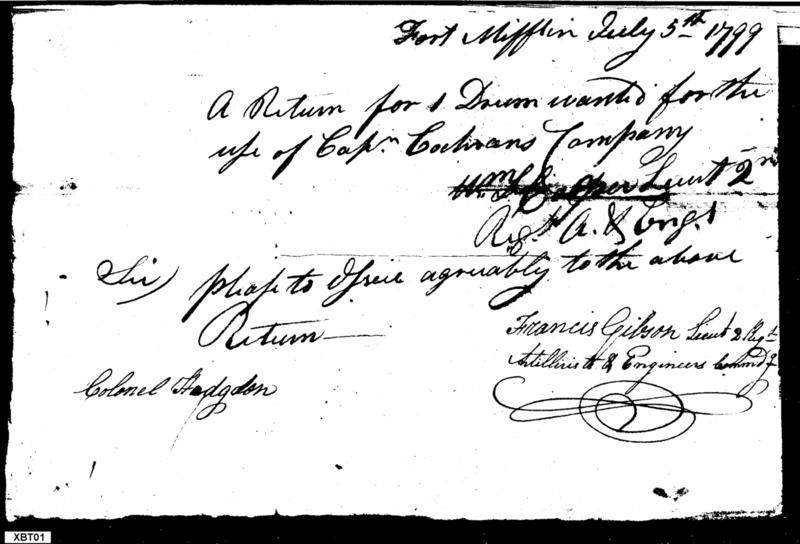 Fort Mifflin July 5th 1799
A Return for 1 Drum wanted for the
use of Capn Cochrans Company
Cooper Lieut 2nd
Regt A. & Eng.
Sir please to Issue agreuably to the above
Return
Francis Gibson Lieut 2 Regt
Artillerists & Engineers Commdg
Colonel Hodgdon
XBT01